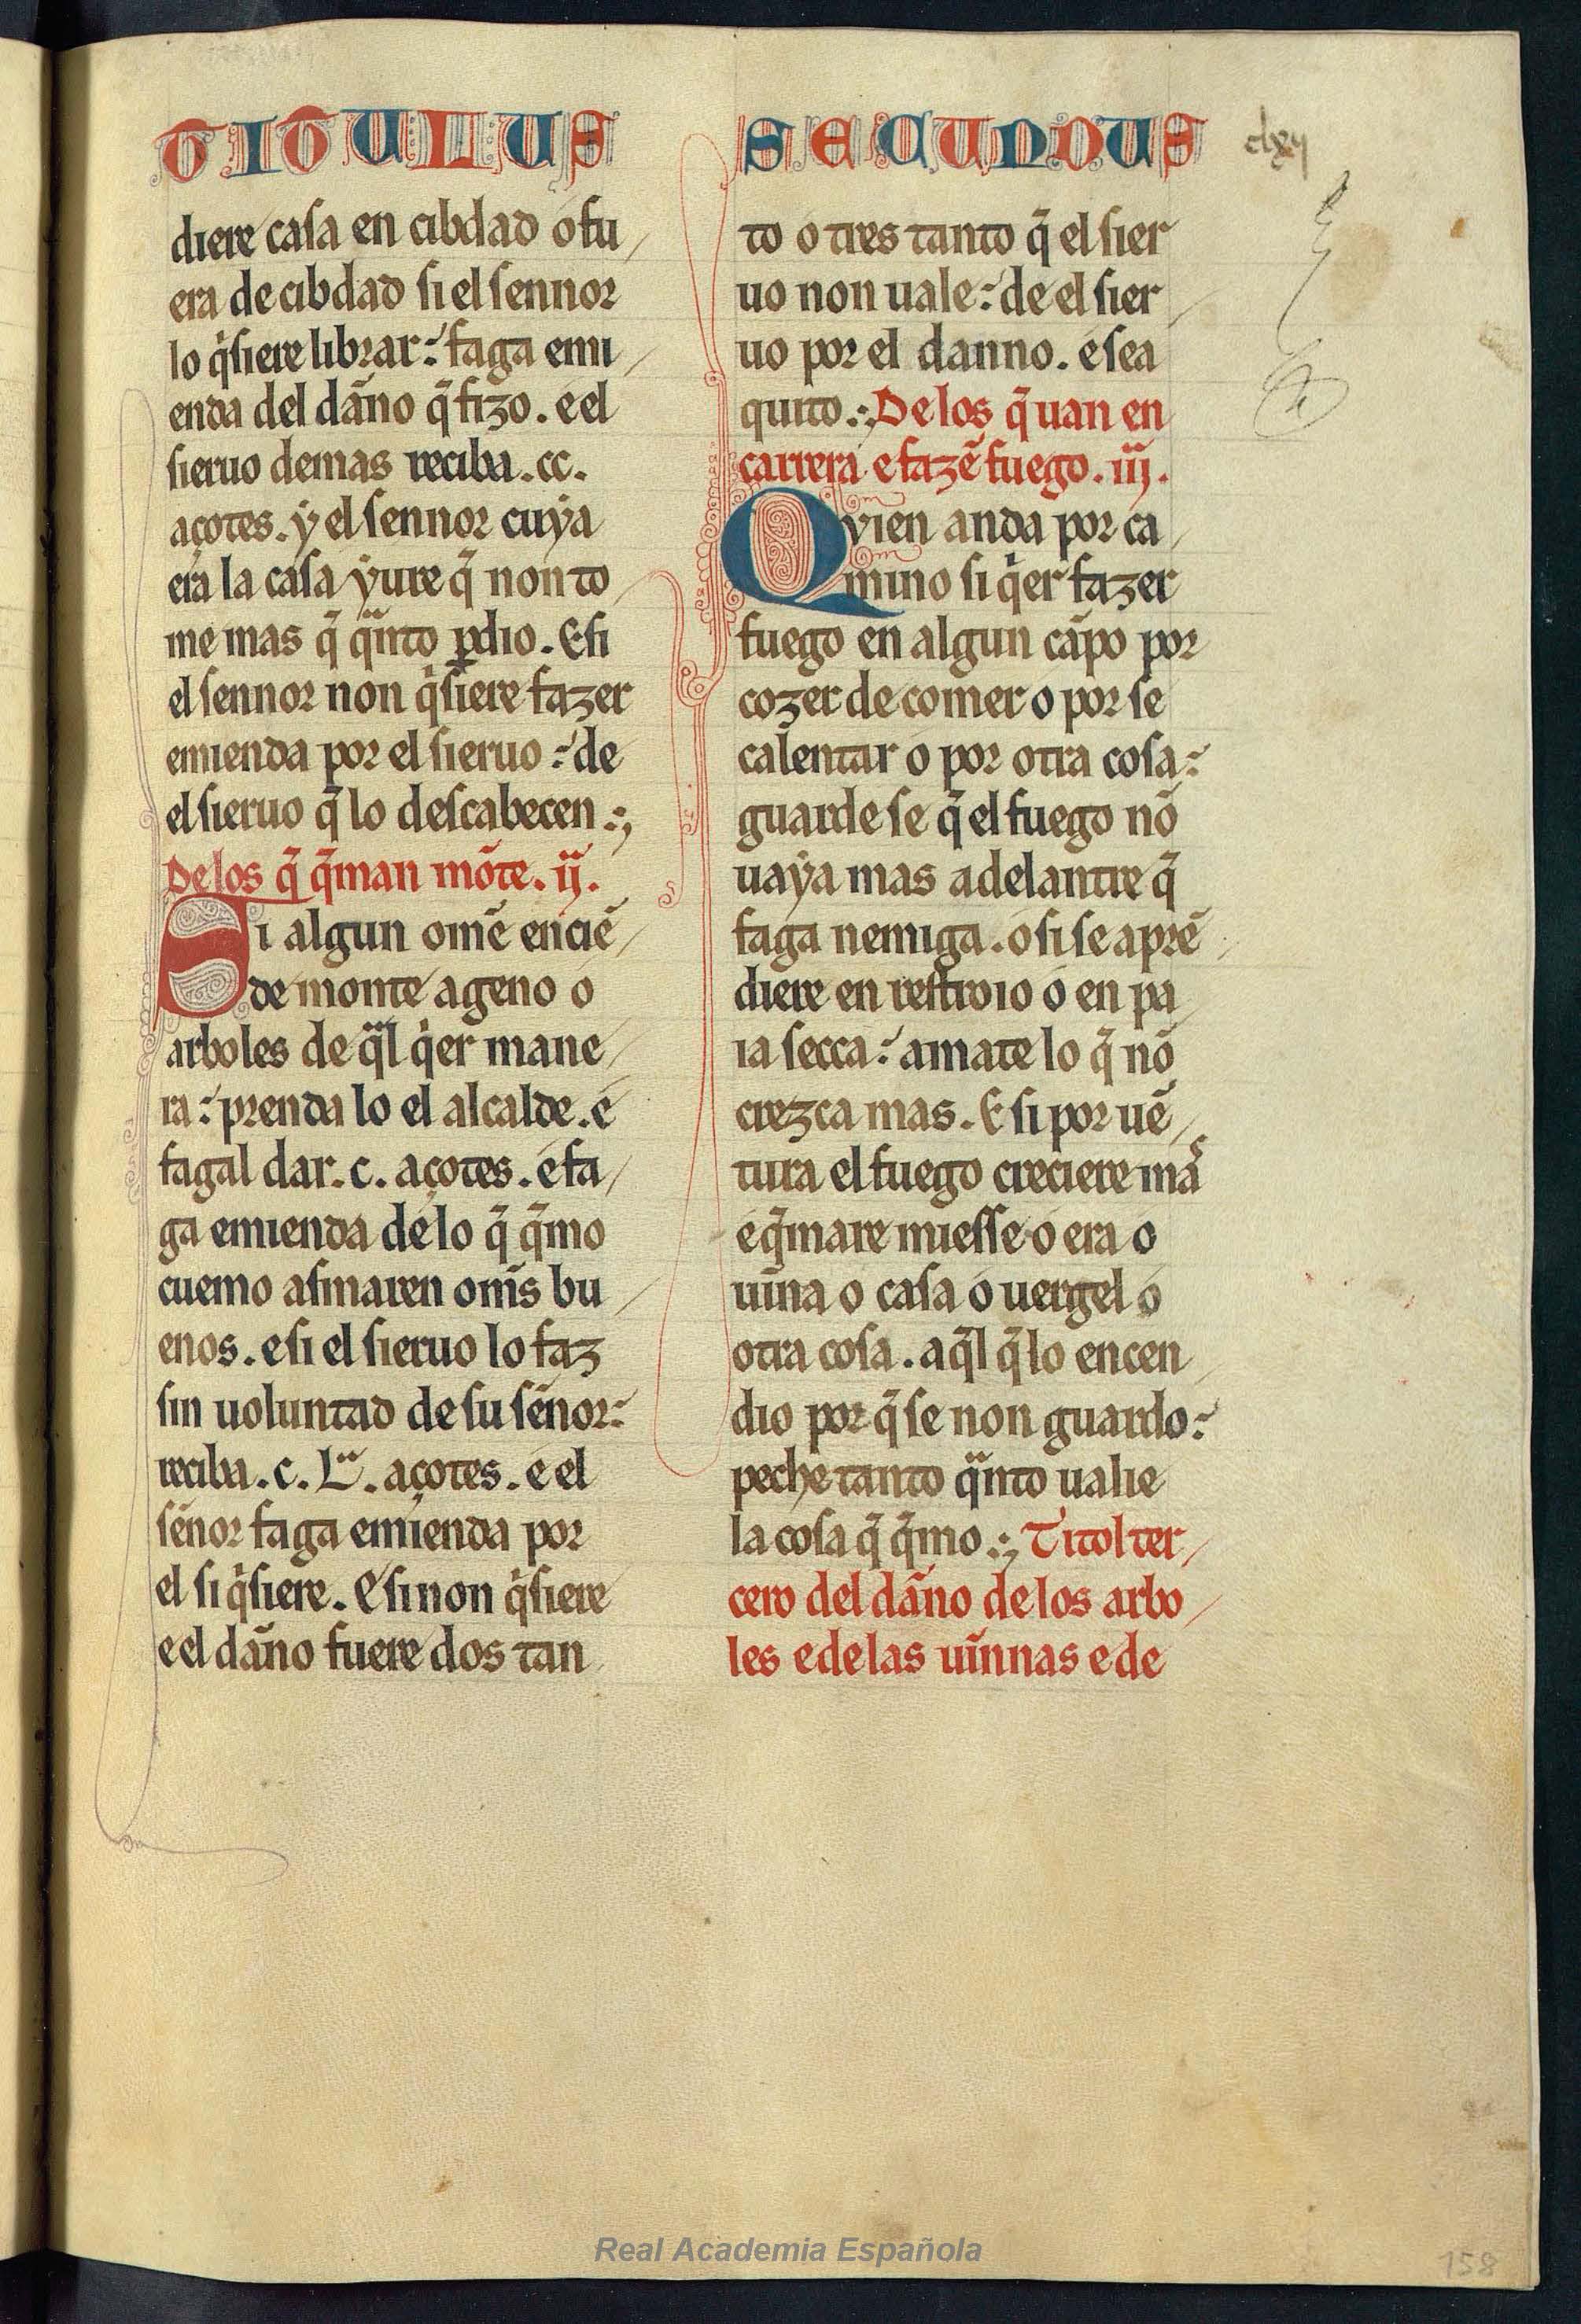 TITULUS
diere casa en cibdad o fu
era de cibdad si el sennor
lo q̇siere librar: faga emi
enda del dan̄o q̄ fizo. e el
sieruo demas reciba. cc.
açotes. ẏ el sennor cuẏa
era la casa ẏure q̄ non to
me mas q̄ qᵃnto ꝑdio. E si
el sennor non q̇siere fazer
emienda por el sieruo: de
el sieruo q̄ lo descabecen
De los q̄ q̄man mōte. ij.
Si algun omē enciē
de monte ageno o
arboles de qᵃl q̇er mane
ra: prenda lo el alcalde. e
fagal dar. c. açotes. e fa
ga emienda de lo q̄ q̄mo
cuemo asmaren om̄s bu
enos. e si el sieruo lo faz
sin uoluntad de su sen̄or:
reciba. c. Lᵃ. açotes. e el
sen̄or faga emienda por
el si q̇siere. E si non q̇siere
e el dan̄o fuere dos tan
SECUNDUS
clxij
to o tres tanto q̄ el sier
uo non uale: de el sier
uo por el danno. e sea
quito. De los q̄ uan en
carrera e fazē fuego. iij.
Qvien anda por ca
mino si q̇er fazer
fuego en algun cāpo por
cozer de comer o por se
calentar o por otra cosa:
guarde se q̄ el fuego nō
uaẏa mas adelantre q̄
faga nemiga. o si se aprē
diere en restroio o en pa
ia secca: amate lo q̄ nō
crezca mas. E si por uē
tura el fuego creciere maˢ
e q̄mare miesse o era o
uin̄a o casa o uergel o
otra cosa. aq̄l q̄ lo encen
dio por q̄ se non guardo:
peche tanto qᵃnto ualie
la cosa q̄ q̄mo. Titol ter
cero del dan̄o de los arbo
les e de las uin̄nas e de
Real Academia Española
158